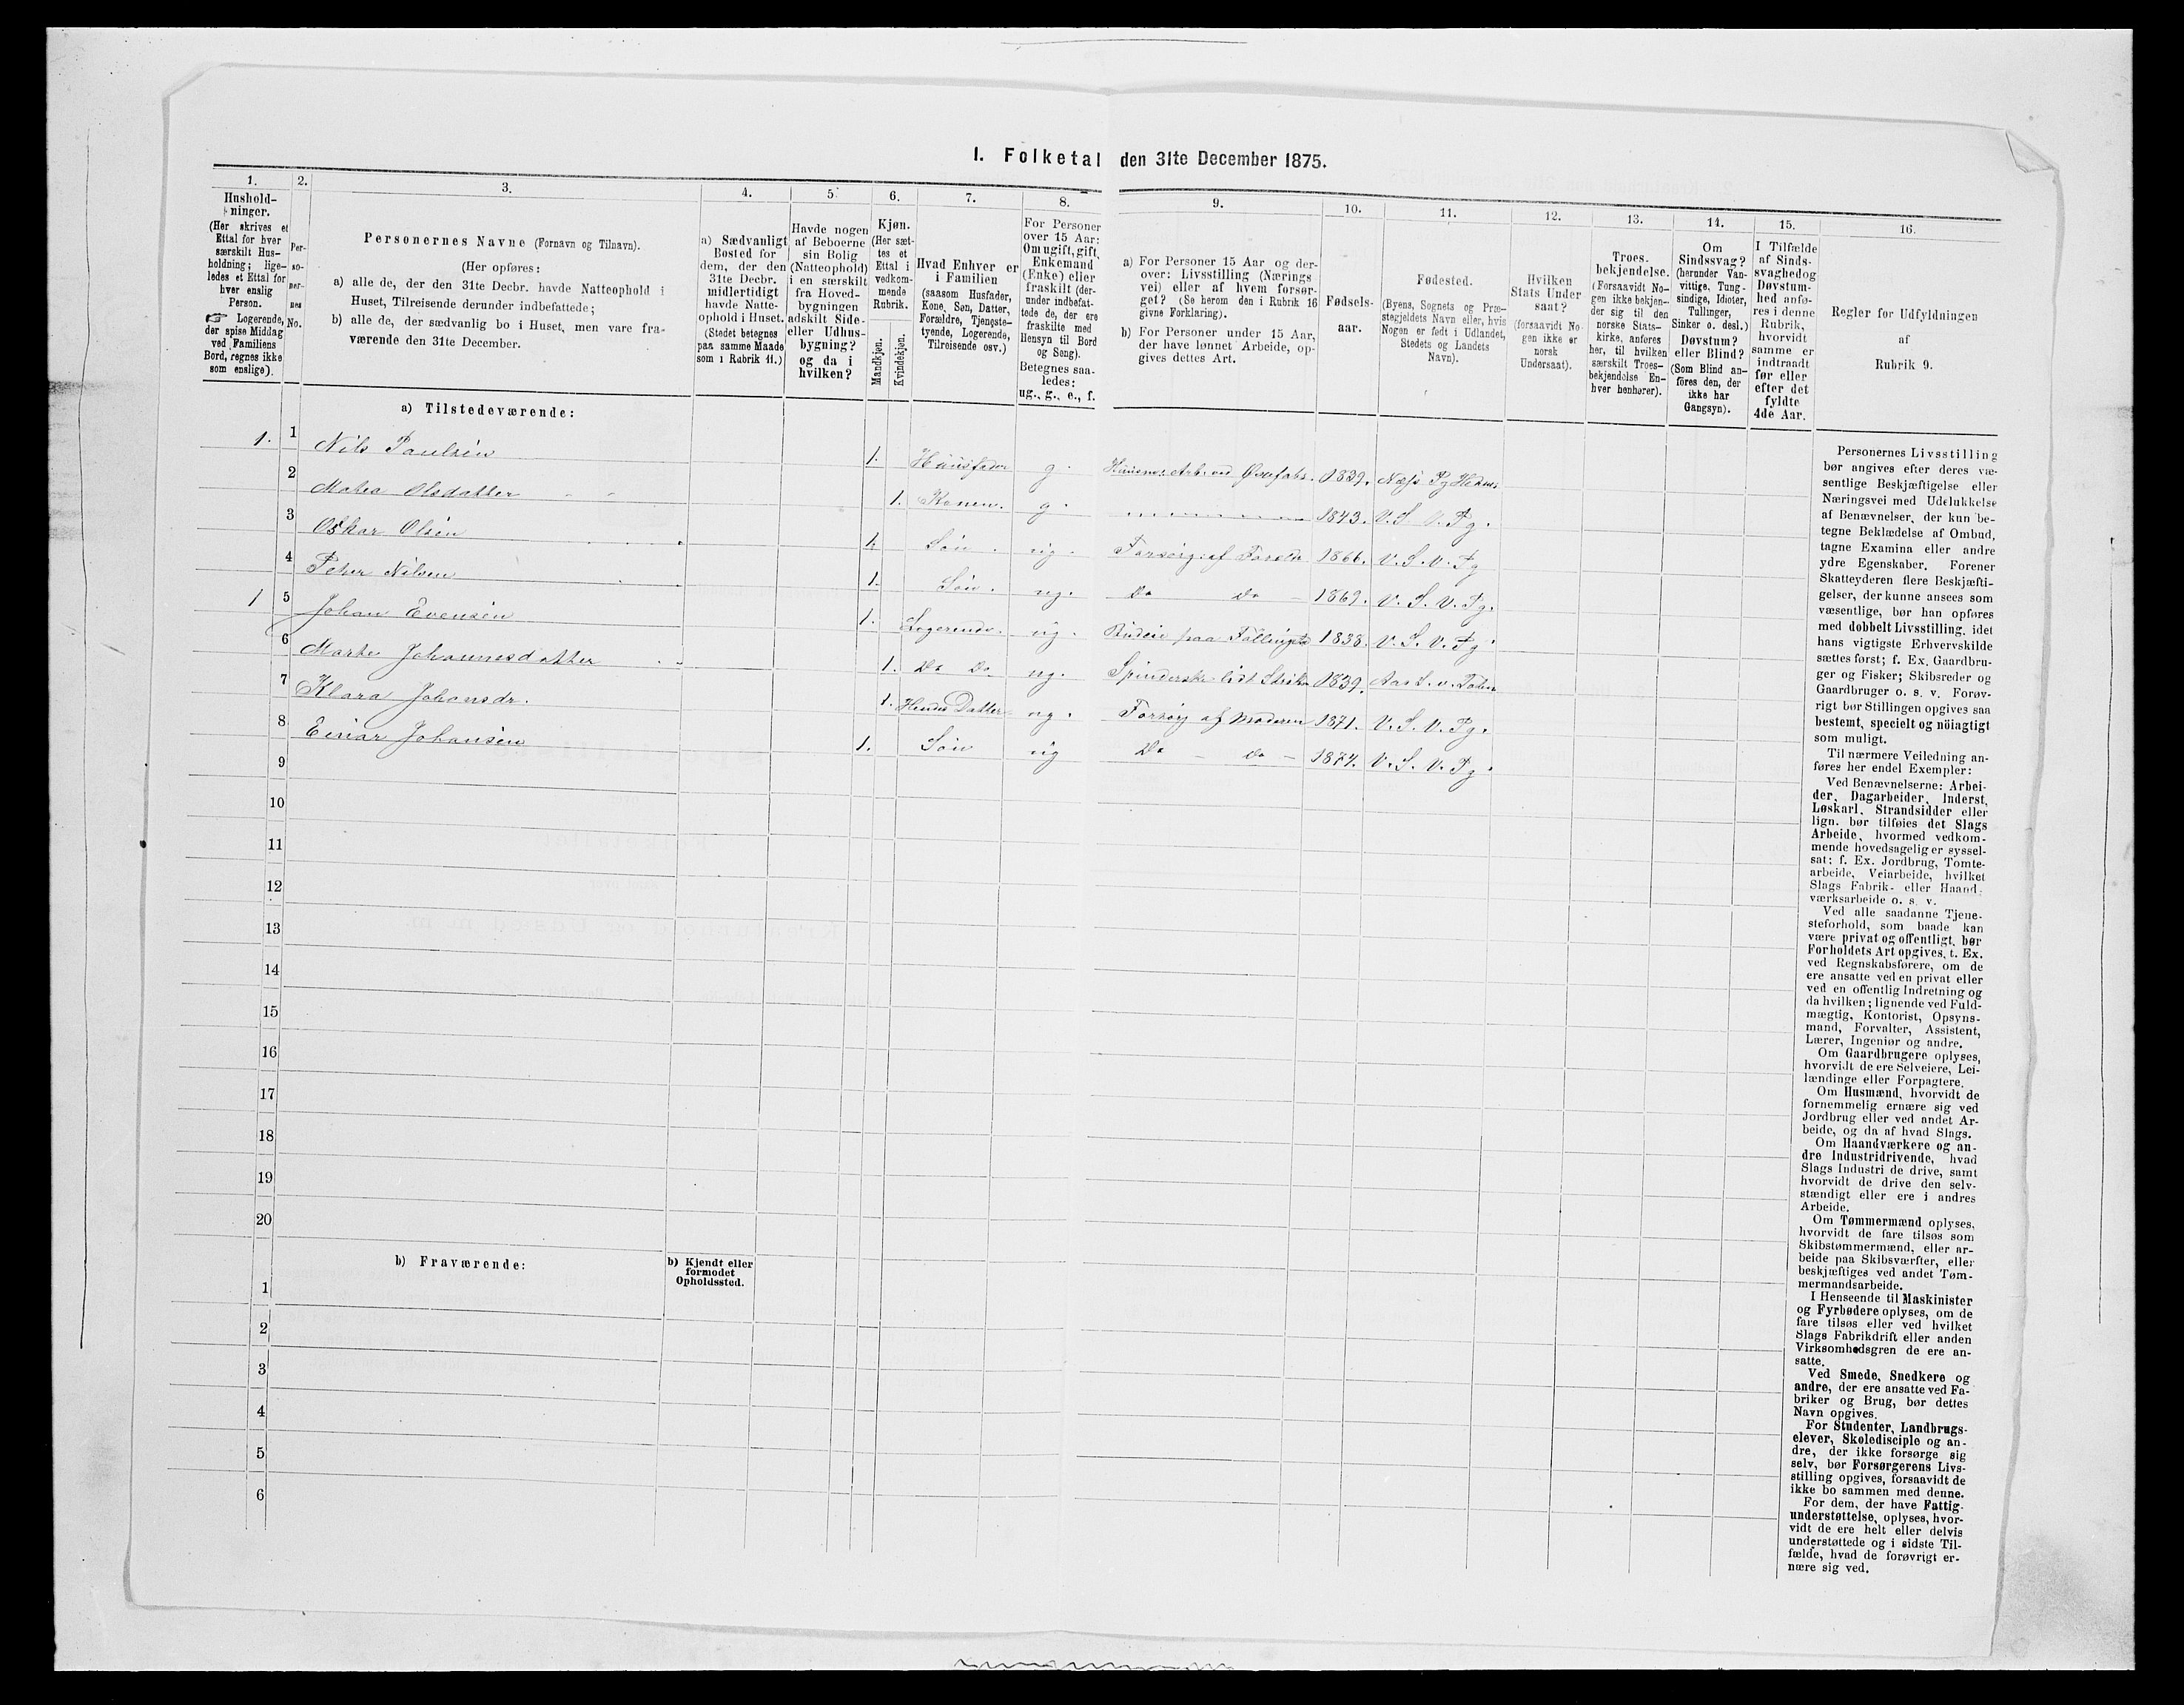 1. Folketal den 31te December 1875.
1.
Hushold-
ninger.
(Her skrives et
Ettal for hver
særskilt Hus-
holdning; lige-
ledes et Ettal for
hver enslig
Person.
☞ Logerende,
der spise Middag
ved Familiens
Bord, regnes ikke
som enslige).
2.
Per-
so-
ner-
nes
No.
3.
Personernes Navne (Fornavn og Tilnavn).
(Her opføres:
a) alle de, der den 31te Decbr. havde Natteophold i
Huset, Tilreisende derunder indbefattede;
b) alle de, der sædvanlig bo i Huset, men vare fra-
værende den 31te December.
4.
a) Sædvanligt
Bosted for
dem, der den
31te Decbr.
midlertidigt
havde Natte-
ophold i Huset.
(Stedet betegnes
paa samme Maade
som i Rubrik 11.)
5.
Havde nogen
af Beboerne
sin Bolig
(Natteophold)
i en særskilt
fra Hoved-
bygningen
adskilt Side-
eller Udhus-
bygning?
og da i
hvilken?
6.
Kjøn.
(Her sæt-
tes et
Ettal i
vedkom-
mende
Rubrik.
Mandkjøn.
Kvindekjøn.
7.
Hvad Enhver er
i Familien
(saasom Husfader,
Kone, Søn, Datter,
Forældre, Tjeneste-
tyende, Logerende,
Tilreisende osv.)
8.
For Personer
over 15 Aar:
Om ugift, gift,
Enkemand
(Enke) eller
fraskilt (der-
under indbefat-
tede de, der ere
fraskilte med
Hensyn til Bord
og Seng).
Betegnes saa-
ledes:
ug., g., e., f.
9.
a) For Personer 15 Aar og der-
over: Livsstilling (Nærings
vei) eller af hvem forsør-
get? (Se herom den i Rubrik 16
givne Forklaring).
b) For Personer under 15 Aar,
der have lønnet Arbeide, op-
gives dettes Art.
10.
Fødsels-
aar.
11.
Fødested.
(Byens, Sognets og Præ-
stegjeldets Navn eller, hvis
Nogen er født i Udlandet,
Stedets og Landets
Navn).
12.
Hvilken
Stats Under
saat?
(forsaavidt No-
gen ikke er
norsk
Undersaat).
13.
Troes-
bekjendelse.
(Forsaavidt No-
gen ikke bekjen-
der sig til den
norske Stats-
kirke, anføres
her, til hvilken
særskilt Troes-
bekjendelse En-
hver henhører).
14.
Om
Sindssvag?
(herunder Van-
vittige, Tung-
sindige, Idioter,
Tullinger,
Sinker o. desl.)
Døvstum?
eller Blind?
(Som Blind an-
føres den, der
ikke har
Gangsyn).
15.
I Tilfælde
af Sinds-
svaghed og
Døvstum-
hed anfø-
res i denne
Rubrik,
hvorvidt
samme er
indtraadt
før eller
efter det
fyldte
4de Aar.
16.
Regler for Udfyldningen
af
Rubrik 9.
a) Tilstedeværende:
1. 1 Nils Paulsen 1. Huusfader g. 1839. Næs Pg Hedm
2 Mathea Olsdatter 1. Konen. g. 1843. V. S. V. Pg.
3 Oskar Olsen 1. Søn. ug. Forsørg: af Foreldr 1866. V. S. V. Pg
4 Peter Nilsen 1. Søn. ug. Do Do 1869. V. S. V. Pg.
1 5 Johan Evensen 1. Logerende. ug. paa 1838. V. S. V. Pg.
6 Marte Johannesdatter 1. Do Do ug. Spinderske 1839. Aas S. v. Toten
7 Klara Johansdr. 1. Hendes Datter ug. Forsørg af Moderen 1871. V. S. V. Pg.
8 Einar Johansen 1. Søn ug Do Do 1874. V. S. V. Pg.
9
10
11
12
13
14
15
16
17
18
19
20
b) Fraværende:
b) Kjendt eller
formodet
Opholdssted.
1
2
3
4
5
6
Personernes Livsstilling
bør angives efter deres væ-
sentlige Beskjæftigelse eller
Næringsvei med Udelukkelse
af Benævnelser, der kun be-
tegne Beklædelse af Ombud,
tagne Examina eller andre
ydre Egenskaber. Forener
Skatteyderen flere Beskjæfti-
gelser, der kunne ansees som
væsentlige, bør han opføres
med dobbelt Livsstilling, idet
hans vigtigste Erhvervskilde
sættes først; f. Ex. Gaardbru-
ger og Fisker; Skibsreder og
Gaardbruger o. s. v. Forøv-
rigt bør Stillingen opgives saa
bestemt, specielt og nöiagtigt
som muligt.
Til nærmere Veiledning an-
føres her endel Exempler:
Ved Benævnelserne: Arbei-
der, Dagarbeider, Inderst,
Løskarl, Strandsidder eller
lign. bør tilføies det Slags
Arbeide, hvormed vedkom-
mende hovedsagelig er syssel-
sat; f. Ex. Jordbrug, Tomte-
arbeide, Veiarbeide, hvilket
Slags Fabrik- eller Haand-
værksarbeide o. s. v.
Ved alle saadanne Tjene-
steforhold, som baade kan
være privat og offentligt, bør
Forholdets Art opgives, t. Ex.
ved Regnskabsførere, om de
ere ansatte ved en privat eller
ved en offentlig Indretning og
da hvilken; lignende ved Fuld-
mægtig, Kontorist, Opsyns-
mand, Forvalter, Assistent,
Lærer, Ingeniør og andre.
Om Gaardbrugere oplyses,
hvorvidt de ere Selveiere, Lei-
lændinge eller Forpagtere.
Om Husmænd, hvorvidt de
fornemmelig ernære sig ved
Jordbrug eller ved andet Ar-
beide, og da af hvad Slags.
Om Haandværkere og an-
dre Industridrivende, hvad
Slags Industri de drive, samt
hvorvidt de drive den selv-
stændigt eller ere i andres
Arbeide.
Om Tømmermænd oplyses,
hvorvidt de fare tilsøs som
Skibstømmermænd, eller ar-
beide paa Skibsværfter, eller
beskjæftiges ved andet Tøm-
mermandsarbeide.
I Henseende til Maskinister
og Fyrbødere oplyses, om de
fare tilsøs eller ved hvilket
Slags Fabrikdrift eller anden
Virksomhedsgren de ere an-
satte.
Ved Smede, Snedkere og
andre, der ere ansatte ved Fa-
briker og Brug, bør dettes
Navn opgives.
For Studenter, Landbrugs-
elever, Skoledisciple og an-
dre, der ikke forsørge sig
selv, bør Forsørgerens Livs-
stilling opgives, forsaavidt de
ikke bo sammen med denne.
For dem, der have Fattig-
understøttelse, oplyses, hvor-
vidt de ere helt eller delvis
understøttede og i sidste Til-
fælde, hvad de forøvrigt er-
nære sig ved.